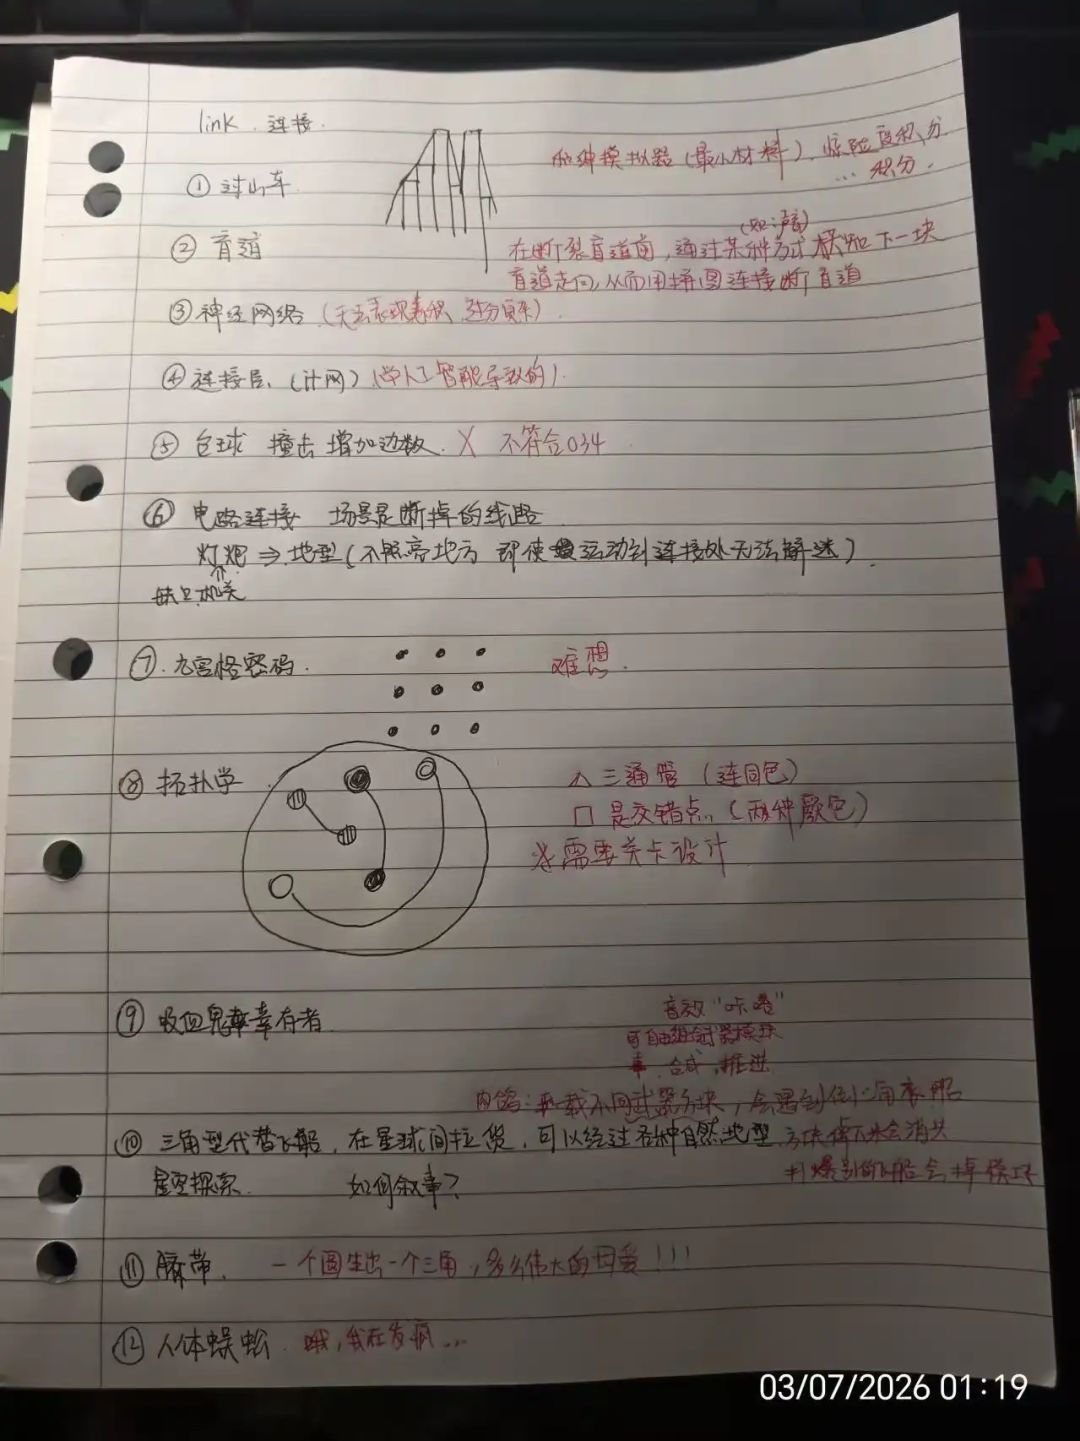 link . 连接.
① 过山车
和神模拟器 (最小材料). 惊险度积分
... 积分.
② 盲道
(如:声音)
在断裂盲道前, 通过某种方式 获知 下一块
盲道走向, 从而用椭圆连接断盲道
③ 神经网络 (无法表现素积, 过分复杂).
④ 连接层. (计网) (学人工智能导致的).
⑤ 包球 撞击 增加边数. X 不符合034
⑥ 电路连接 场景是断掉的线路
灯炮 ⇒ 地型 (不照亮地方 即使 运动到连接处无法解迷).
缺口机关
⑦. 九宫格密码. 难想.
⑧ 拓扑学
△ 三通管 (连同色)
□ 是交错点. (两种颜色)
※需要关卡设计
⑨ 吸血鬼幸存者
音效 "咔嗒"
可自由组合武器模块
合成, 推进
内鸽: 承载不同武器方块, 会遇到其他三角飞船
⑩ 三角型代替飞船, 在星球间拉货, 可以经过各种自然地型. 方块掉下来会消失
星空探索. 如何叙事?
打爆别的飞船会掉模块
⑪ 脐带. 一个圆生出一个三角, 多么伟大的母爱!!!
⑫ 人体蜈蚣. 哦, 我在发疯...
03/07/2026 01:19